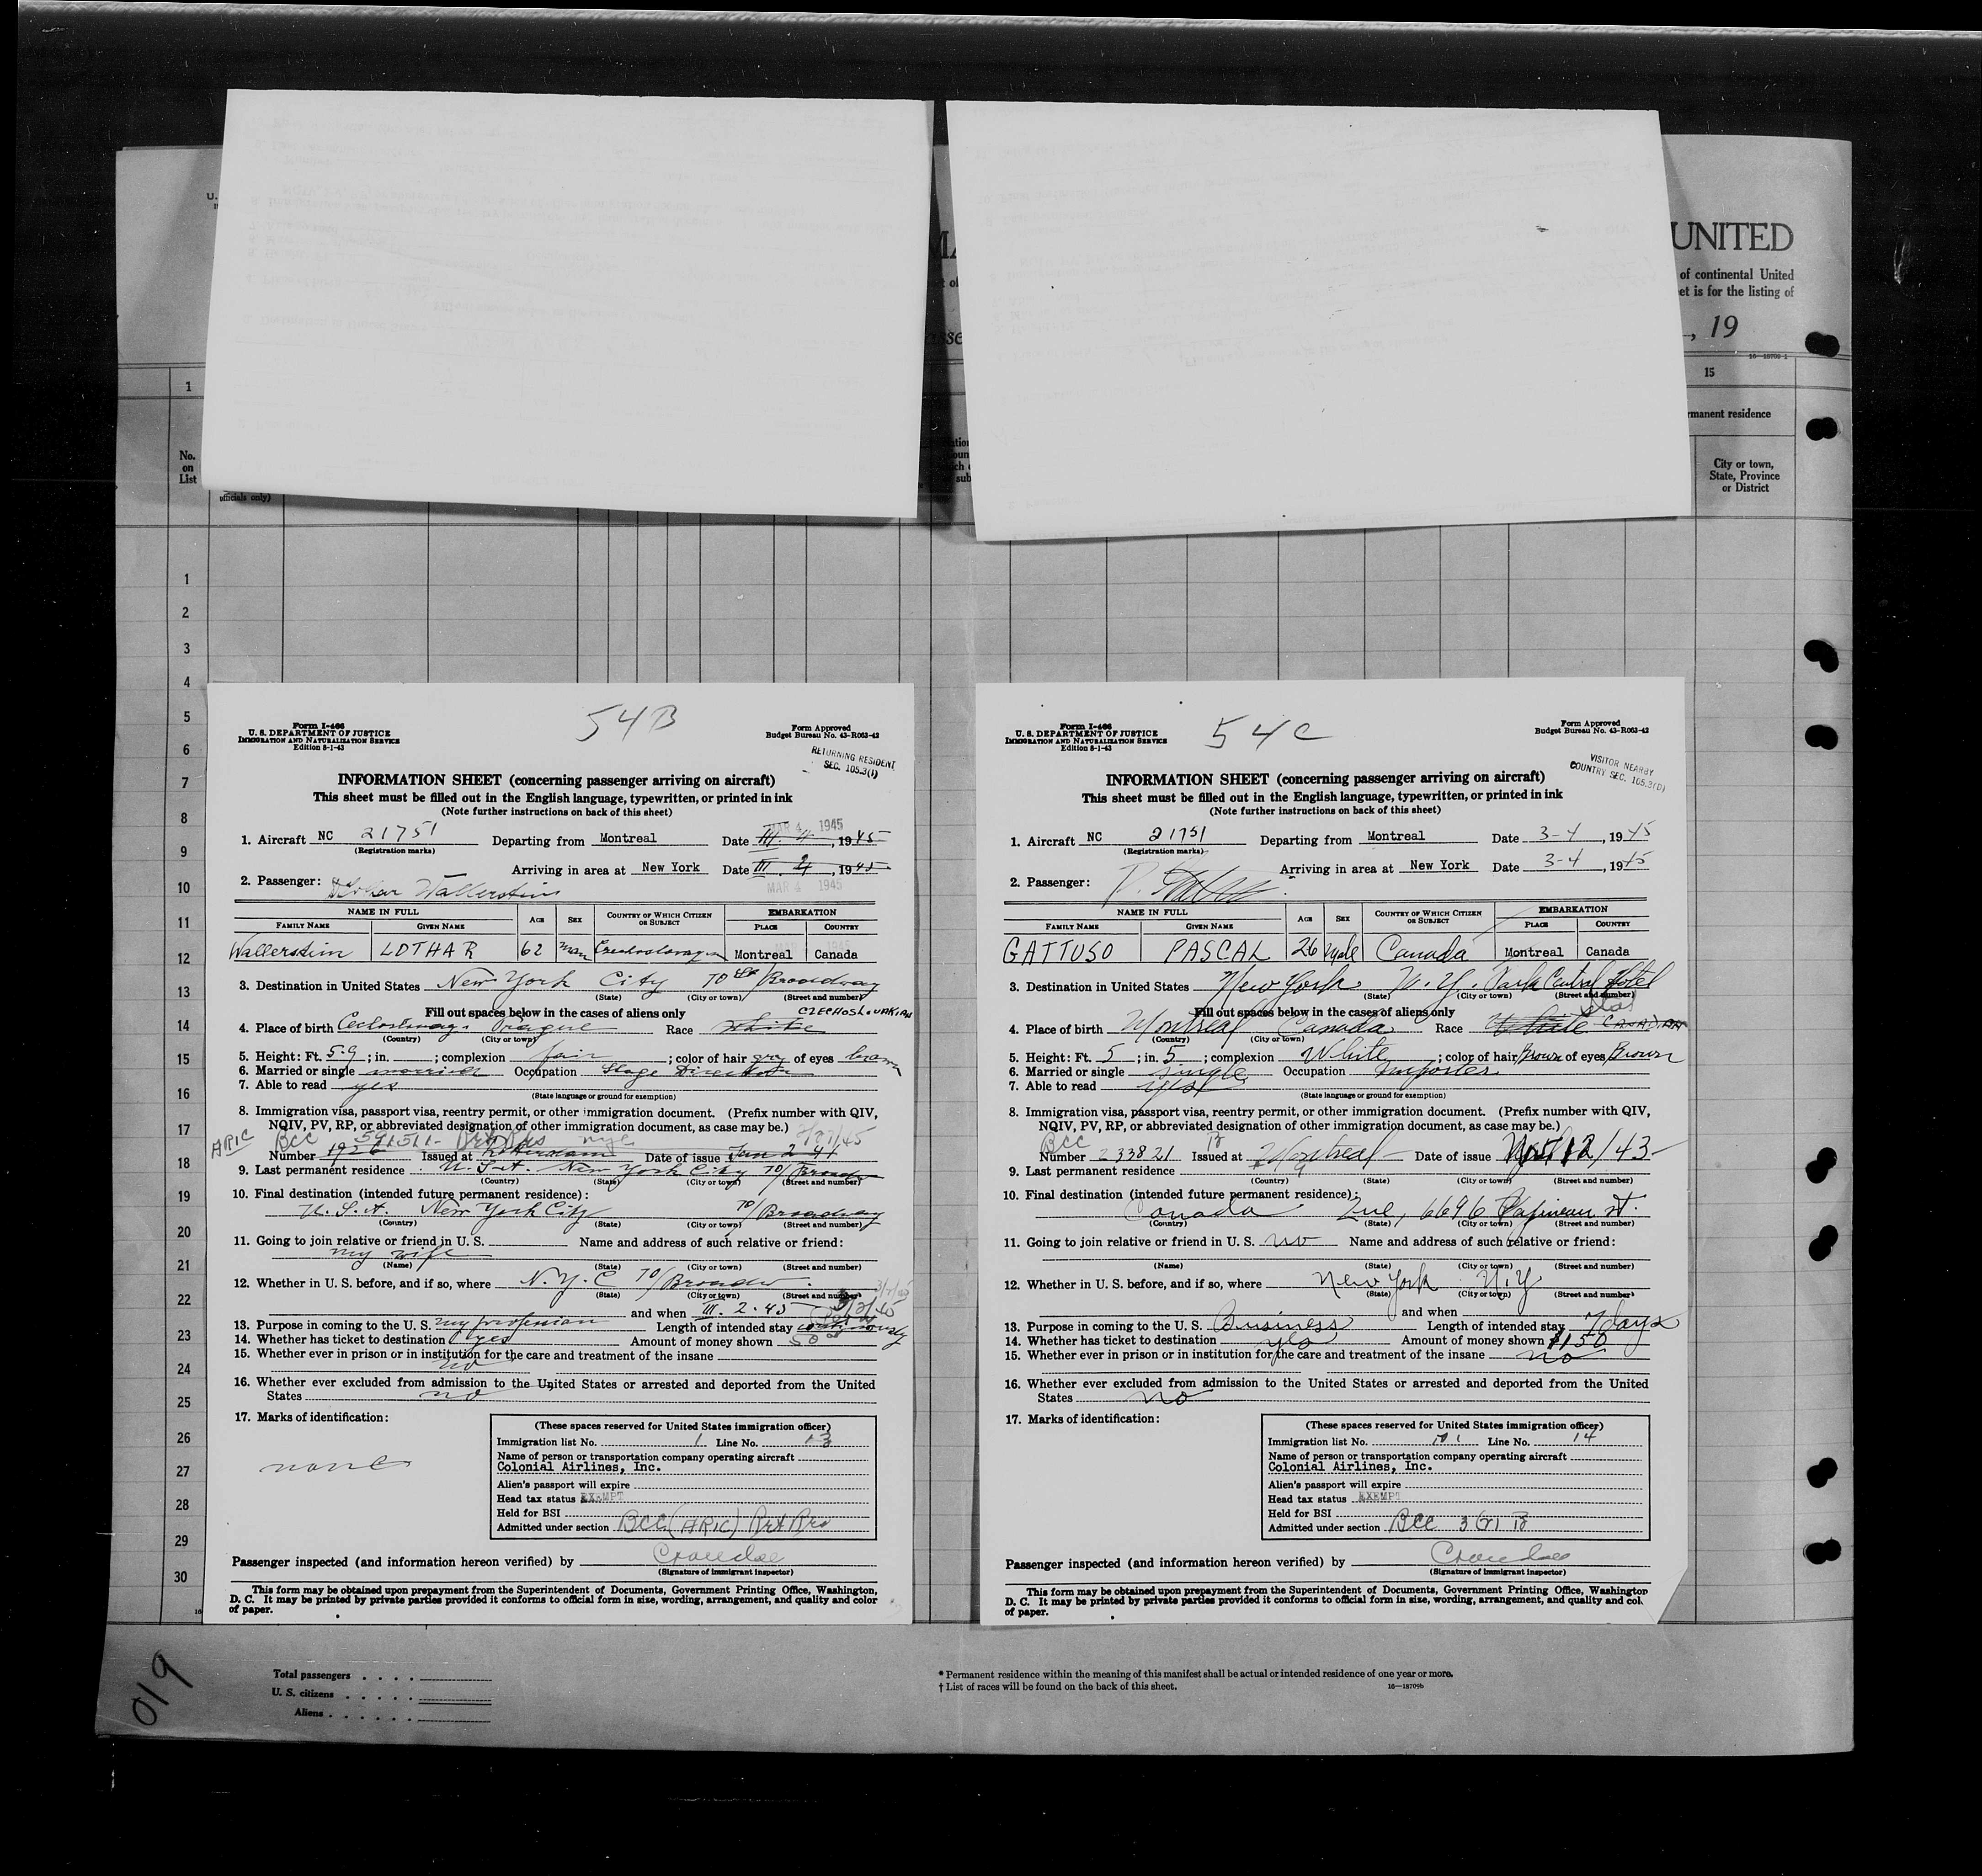 UNITED
of continental United
et is for the listing of
, 19
16—18709-1
1
15
rmanent residence
No.
on
List
officials only)
City or town,
State, Province
or District
1
2
3
4
5
6
7
8
9
10
11
12
13
14
15
16
17
18
19
20
21
22
23
24
25
26
27
28
29
30
54B
Form I-466
U. S. DEPARTMENT OF JUSTICE
IMMIGRATION AND NATURALIZATION SERVICE
Edition 8-1-43
Form Approved
Budget Bureau No. 43-R063-42
RETURNING RESIDENT
SEC. 105.3(1)
INFORMATION SHEET (concerning passenger arriving on aircraft)
This sheet must be filled out in the English language, typewritten, or printed in ink
(Note further instructions on back of this sheet)
MAR 4 1945
1. Aircraft NC 21751 Departing from Montreal Date III. 4, 1945
(Registration marks)
Arriving in area at New York Date III 4, 1945
MAR 4 1945
2. Passenger: Lothar Wallerstein
NAME IN FULL AGE SEX COUNTRY OF WHICH CITIZEN OR SUBJECT EMBARKATION
FAMILY NAME GIVEN NAME PLACE COUNTRY
Wallerstein LOTHAR 62 man Montreal Canada
3. Destination in United States New York City 70 Broadway
(State) (City or town) (Street and number)
Fill out spaces below in the cases of aliens only
CZECHOSLOVAKIAN
4. Place of birth Prague Race White
(Country) (City or town)
5. Height: Ft. 5.9; in. ; complexion fair; color of hair gry of eyes brown
6. Married or single married Occupation Stage Director
7. Able to read yes
(State language or ground for exemption)
8. Immigration visa, passport visa, reentry permit, or other immigration document. (Prefix number with QIV,
NQIV, PV, RP, or abbreviated designation of other immigration document, as case may be.)
ARIC BCC 591511
Number 1926 Issued at Date of issue Jan 2 41
9. Last permanent residence U.S.A. New York City 70/Broadw
(Country) (State) (City or town) (Street and number)
10. Final destination (intended future permanent residence):
U. S. A. New York City 70/Broadway
(Country) (State) (City or town) (Street and number)
11. Going to join relative or friend in U. S. Name and address of such relative or friend:
my wife
(Name) (State) (City or town) (Street and number)
12. Whether in U. S. before, and if so, where N.Y.C 70/Broadw.
(State) (City or town) (Street and number)
and when III. 2. 45
13. Purpose in coming to the U. S. my profession Length of intended stay
14. Whether has ticket to destination yes Amount of money shown 50
15. Whether ever in prison or in institution for the care and treatment of the insane
no
16. Whether ever excluded from admission to the United States or arrested and deported from the United
States no
17. Marks of identification:
none
(These spaces reserved for United States immigration officer)
Immigration list No. 1 Line No. 13
Name of person or transportation company operating aircraft
Colonial Airlines, Inc.
Alien's passport will expire
Head tax status EXEMPT
Held for BSI
Admitted under section BCC (ARIC)
Passenger inspected (and information hereon verified) by
(Signature of immigrant inspector)
This form may be obtained upon prepayment from the Superintendent of Documents, Government Printing Office, Washington,
D. C. It may be printed by private parties provided it conforms to official form in size, wording, arrangement, and quality and color
of paper.
54C
Form I-466
U. S. DEPARTMENT OF JUSTICE
IMMIGRATION AND NATURALIZATION SERVICE
Edition 8-1-43
Form Approved
Budget Bureau No. 43-R063-42
VISITOR NEARBY
COUNTRY SEC. 105.3(D)
INFORMATION SHEET (concerning passenger arriving on aircraft)
This sheet must be filled out in the English language, typewritten, or printed in ink
(Note further instructions on back of this sheet)
1. Aircraft NC 21751 Departing from Montreal Date 3-4, 1945
(Registration marks)
Arriving in area at New York Date 3-4, 1945
2. Passenger:
NAME IN FULL AGE SEX COUNTRY OF WHICH CITIZEN OR SUBJECT EMBARKATION
FAMILY NAME GIVEN NAME PLACE COUNTRY
GATTUSO PASCAL 26 Male Canada Montreal Canada
3. Destination in United States New York N.Y. Park Central Hotel
(State) (City or town) (Street and number)
Fill out spaces below in the cases of aliens only
4. Place of birth Montreal Canada Race White CANADIAN
(Country) (City or town)
5. Height: Ft. 5; in. 5; complexion White; color of hair Brown of eyes Brown
6. Married or single single Occupation Importer
7. Able to read yes
(State language or ground for exemption)
8. Immigration visa, passport visa, reentry permit, or other immigration document. (Prefix number with QIV,
NQIV, PV, RP, or abbreviated designation of other immigration document, as case may be.)
BCC
Number 233821 Issued at Montreal Date of issue 12/43
9. Last permanent residence
(Country) (State) (City or town) (Street and number)
10. Final destination (intended future permanent residence):
Canada Que, 6696 Papineau St.
(Country) (State) (City or town) (Street and number)
11. Going to join relative or friend in U. S. no Name and address of such relative or friend:
(Name) (State) (City or town) (Street and number)
12. Whether in U. S. before, and if so, where New York N.Y
(State) (City or town) (Street and number)
and when
13. Purpose in coming to the U. S. Business Length of intended stay 7 days
14. Whether has ticket to destination yes Amount of money shown $150
15. Whether ever in prison or in institution for the care and treatment of the insane no
16. Whether ever excluded from admission to the United States or arrested and deported from the United
States no
17. Marks of identification:
(These spaces reserved for United States immigration officer)
Immigration list No. Line No. 14
Name of person or transportation company operating aircraft
Colonial Airlines, Inc.
Alien's passport will expire
Head tax status EXEMPT
Held for BSI
Admitted under section BCC 3(2) B
Passenger inspected (and information hereon verified) by
(Signature of immigrant inspector)
This form may be obtained upon prepayment from the Superintendent of Documents, Government Printing Office, Washington
D. C. It may be printed by private parties provided it conforms to official form in size, wording, arrangement, and quality and col.
of paper.
019
Total passengers . . . .
U. S. citizens . . . . .
Aliens . . . . . .
* Permanent residence within the meaning of this manifest shall be actual or intended residence of one year or more.
† List of races will be found on the back of this sheet.
16—18709b